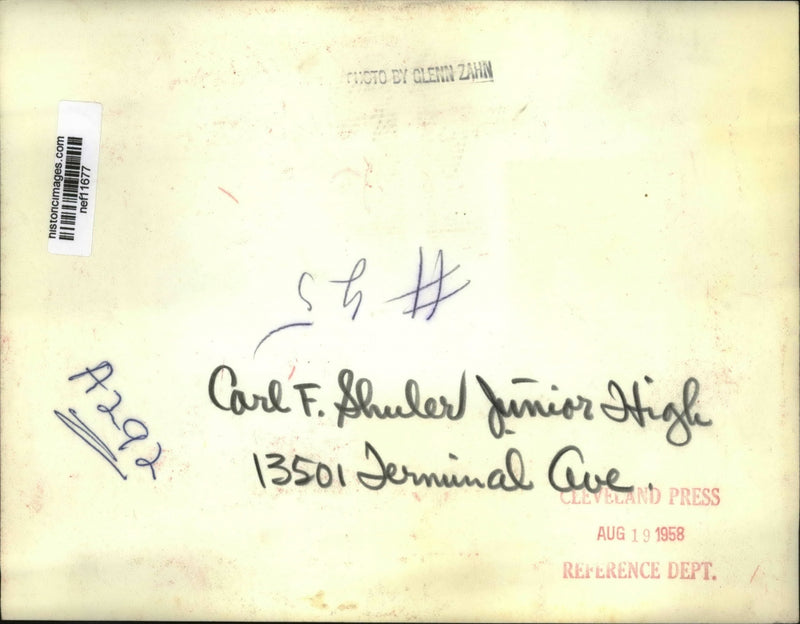 PHOTO BY GLENN ZAHN
historicimages.com
nef11677
A292
Carl F. Shuler Junior High
13501 Terminal Ave.
CLEVELAND PRESS
AUG 19 1958
REFERENCE DEPT.